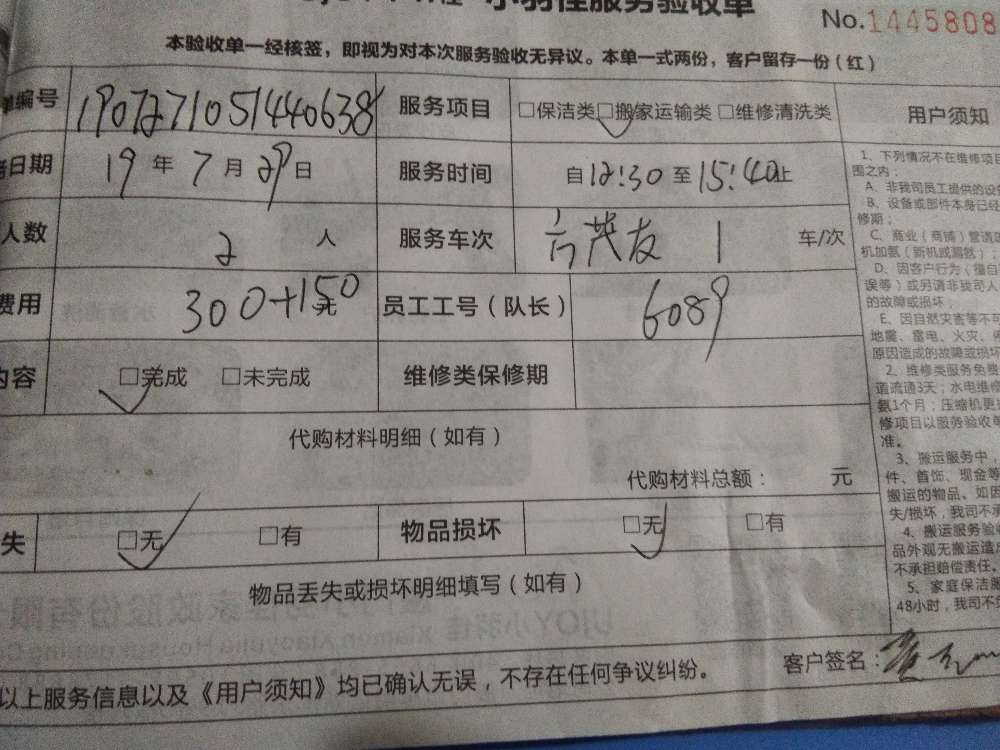 小羽佳服务验收单
No.1445808
本验收单一经核签，即视为对本次服务验收无异议。本单一式两份，客户留存一份（红）
单编号 1907271051440638 服务项目 □保洁类 □搬家运输类 □维修清洗类
日期 19年7月29日 服务时间 自12:30至15:40止
人数 2人 服务车次 1 车/次
费用 300+150元 员工工号（队长） 6089
内容 □完成 □未完成 维修类保修期
代购材料明细（如有）
代购材料总额： 元
失 □无 □有 物品损坏 □无 □有
物品丢失或损坏明细填写（如有）
以上服务信息以及《用户须知》均已确认无误，不存在任何争议纠纷。
客户签名：
用户须知
1、下列情况不在维修项目
围之内：
A、非我司员工提供的设
B、设备或部件本身已经
修期；
C、商业（商铺）管道
机加氨（新机或漏氨）；
D、因客户行为（擅自
误等）或另请非我司人
的故障或损坏；
E、因自然灾害等不可
地震、雷电、火灾、
原因造成的故障或损坏
2、维修类服务免费
道疏通3天；水电维修
氨1个月；压缩机更
修项目以服务验收单
准。
3、搬运服务中，
件、首饰、现金等
搬运的物品。如因
失/损坏，我司不承
4、搬运服务验
品外观无搬运造
不承担赔偿责任。
5、家庭保洁服
48小时，我司不